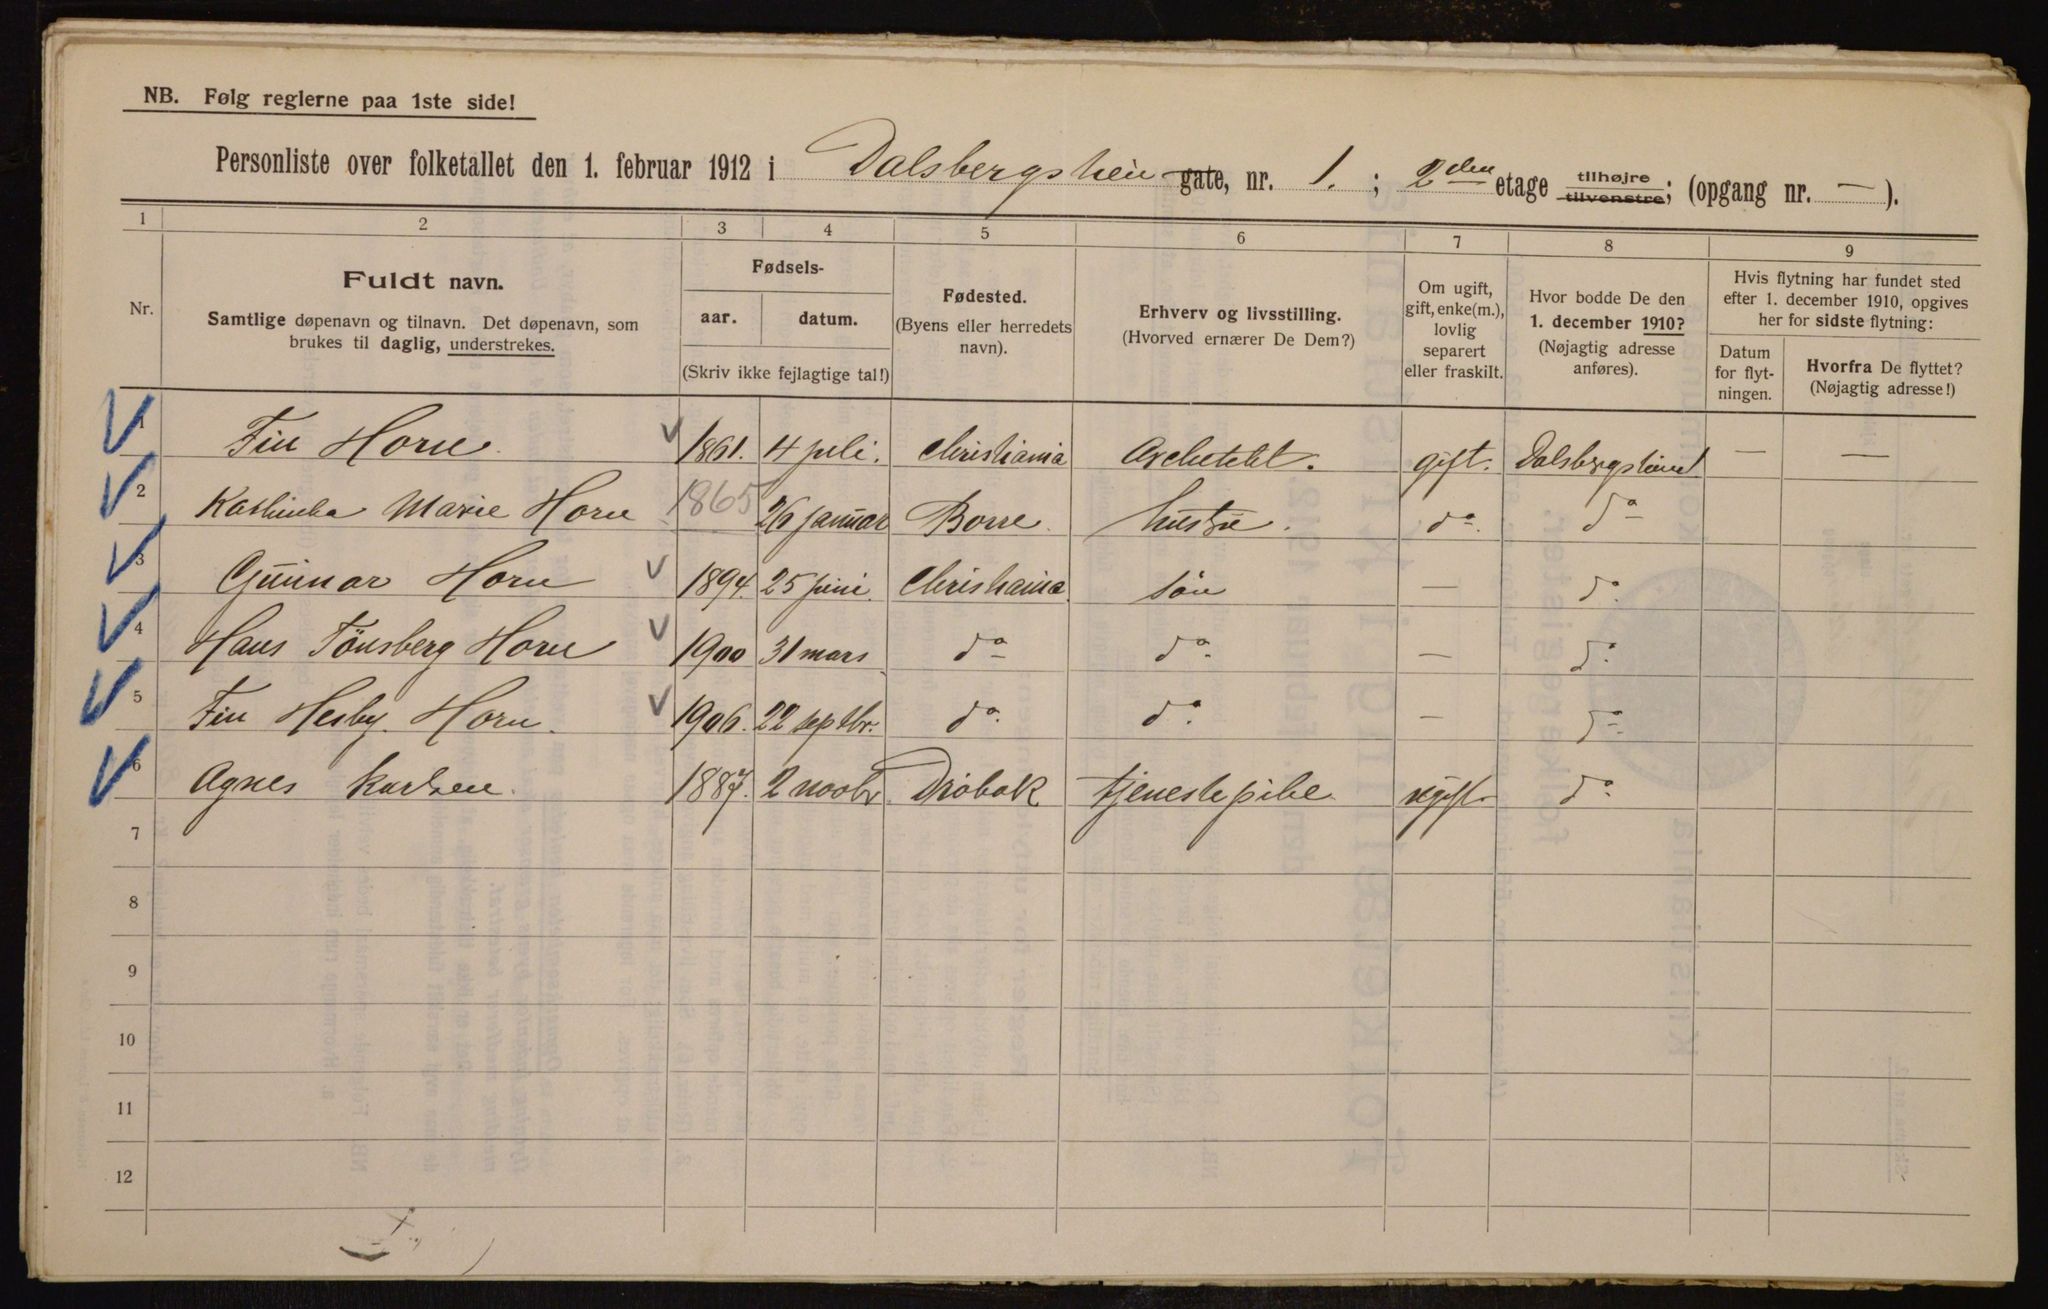 NB. Følg reglerne paa 1ste side!
Personliste over folketallet den 1. februar 1912 i Dalsbergstien gate, nr. 1. ; 2den etage tilhøjre tilvenstre; (opgang nr. — ).
1 2 3 4 5 6 7 8 9
Nr.
Fuldt navn.
Samtlige døpenavn og tilnavn. Det døpenavn, som
brukes til daglig, understrekes.
Fødsels-
aar. datum.
(Skriv ikke fejlagtige tal!)
Fødested.
(Byens eller herredets
navn).
Erhverv og livsstilling.
(Hvorved ernærer De Dem?)
Om ugift,
gift, enke(m.),
lovlig
separert
eller fraskilt.
Hvor bodde De den
1. december 1910?
(Nøjagtig adresse
anføres).
Hvis flytning har fundet sted
efter 1. december 1910, opgives
her for sidste flytning:
Datum
for flyt-
ningen.
Hvorfra De flyttet?
(Nøjagtig adresse!)
1 Fin Horn 1861. 4 juli. Christiania Architekt. gift. Dalsbergstien 1 — —
2 Kathinka Marie Horn 1865 26 januar Borre. hustru. do. do
3 Gunnar Horn 1894. 25 juni. Christiania. søn — do.
4 Hans Tønsberg Horn 1900 31 mars do do. — do.
5 Fin Hesby Horn. 1906. 22 septbr. do. do. — do.
6 Agnes Karlsen. 1887. 2 novbr. Drøbak tjenestepike ugift. do.
7
8
9
10
11
12